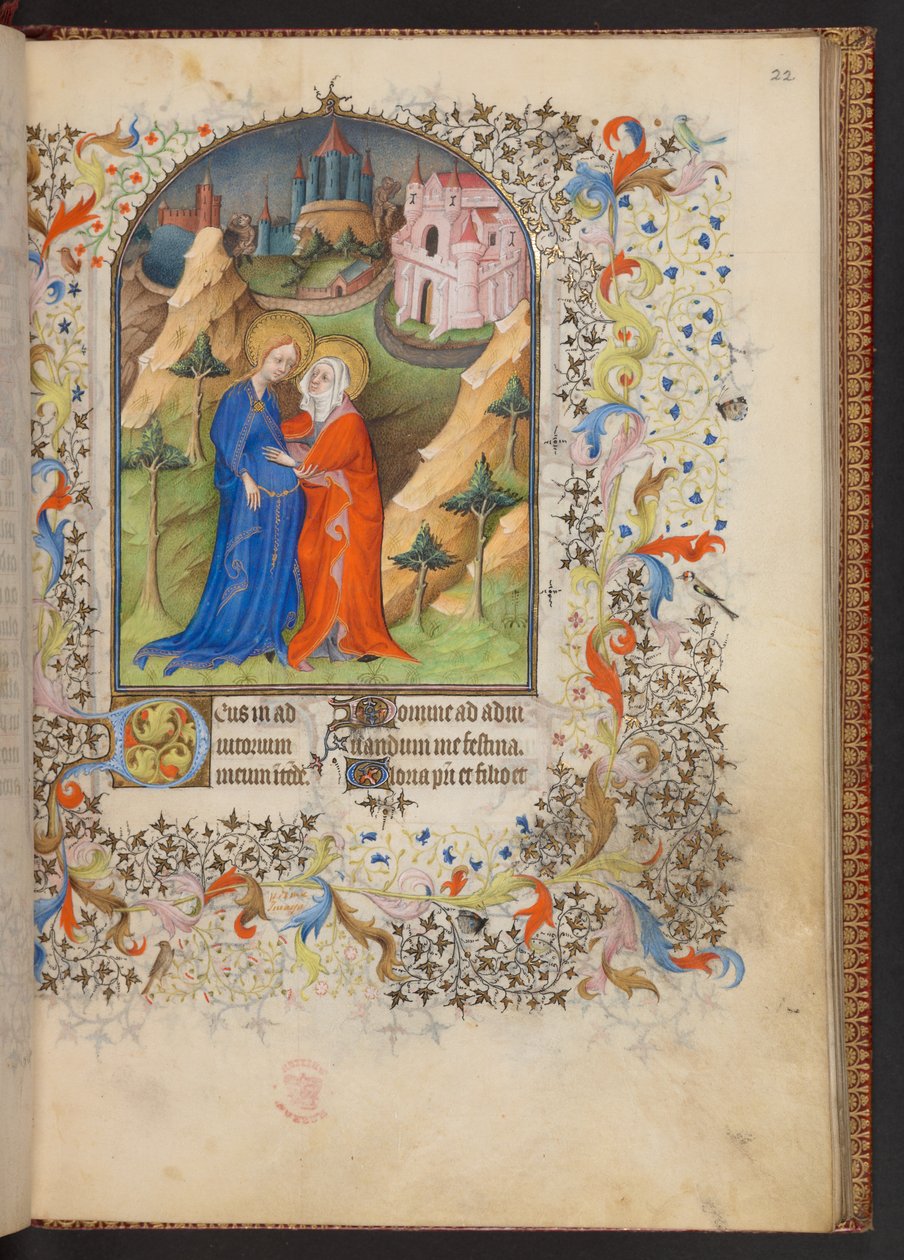 22
Deus in ad
iutorium
meum inte̅de.
Domine ad adiu
uandum me festina.
Gloria pr̅i et filio et